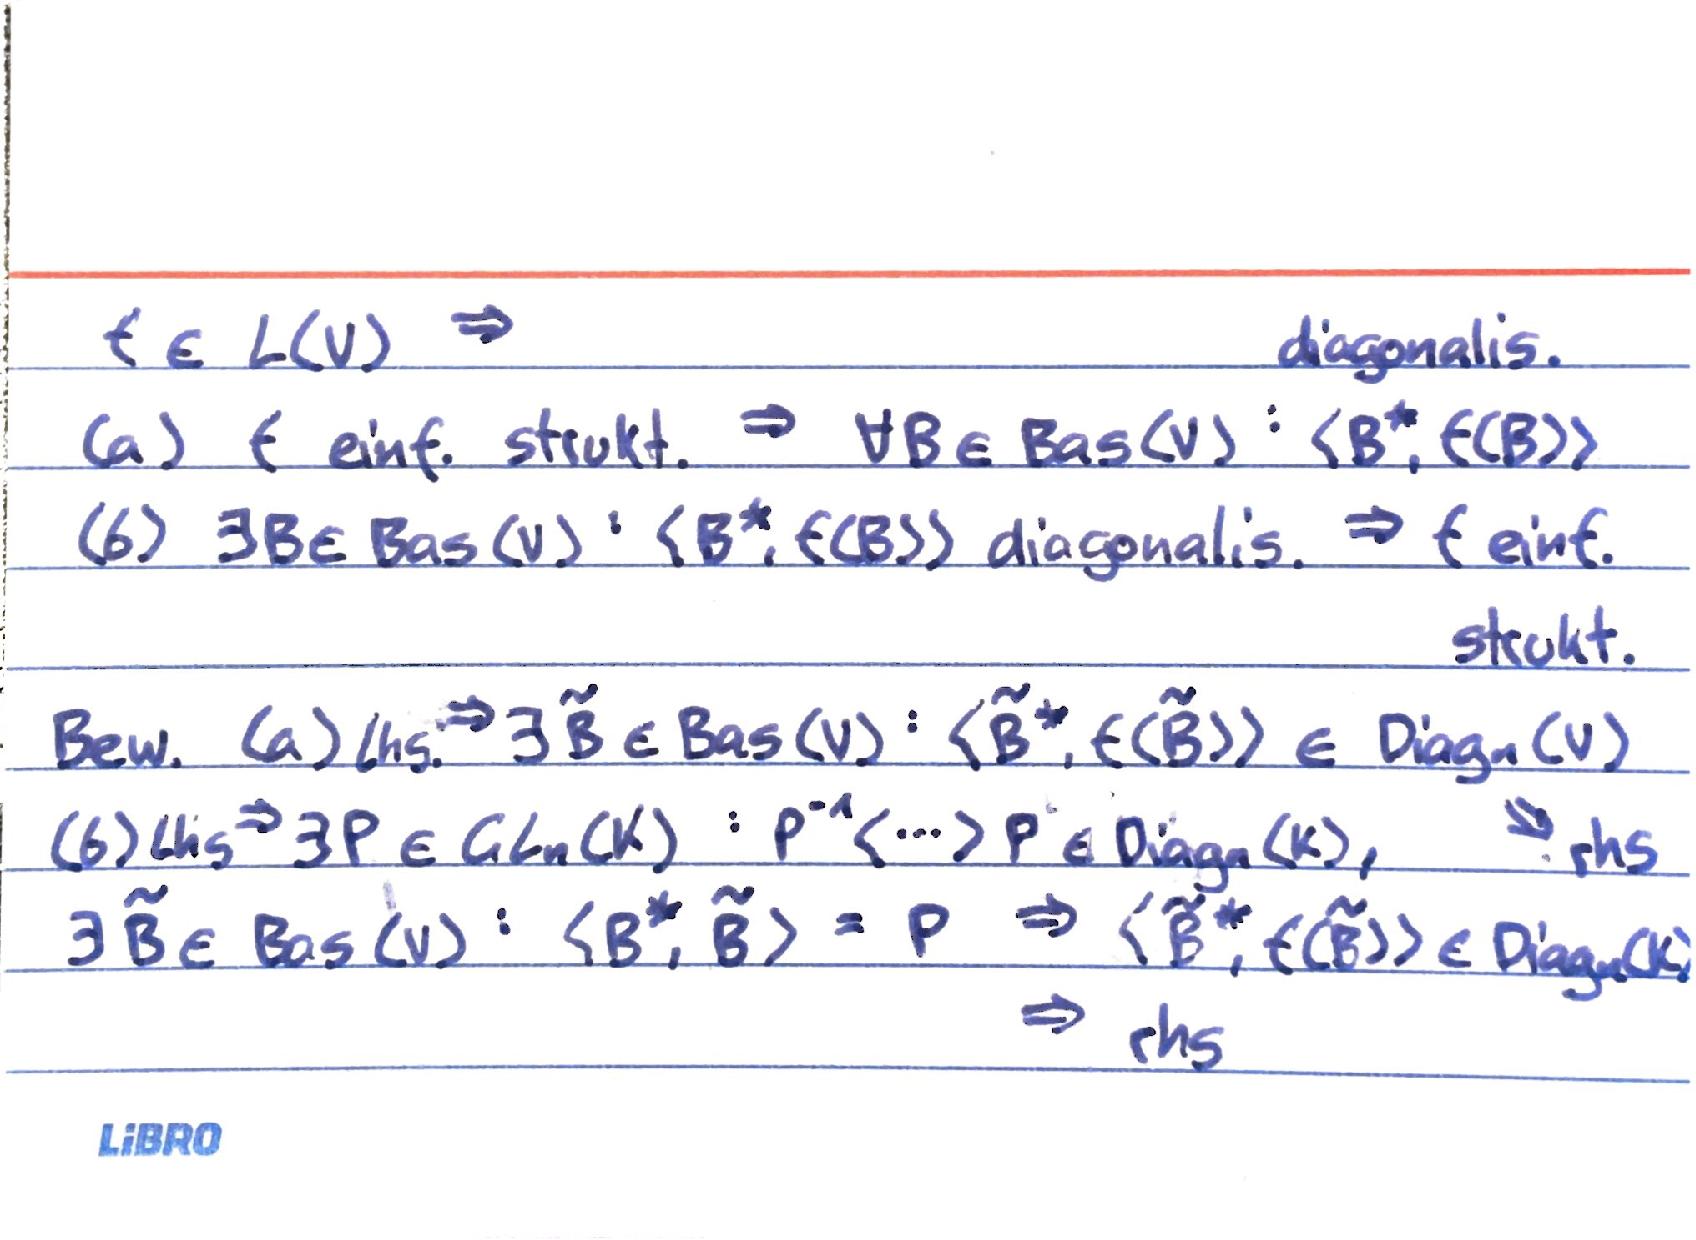 f ∈ L(V) ⇒ diagonalis.
(a) f einf. strukt. ⇒ ∀B ∈ Bas(V) : ⟨B*, f(B)⟩
(b) ∃B ∈ Bas(V) : ⟨B*, f(B)⟩ diagonalis. ⇒ f einf.
strukt.
Bew. (a) lhs. ⇒ ∃B̃ ∈ Bas(V) : ⟨B̃*, f(B̃)⟩ ∈ Diagₙ(V)
(b) lhs ⇒ ∃P ∈ GLₙ(K) : P⁻¹⟨...⟩P ∈ Diagₙ(K), ⇘ rhs
∃B̃ ∈ Bas(V) : ⟨B*, B̃⟩ = P ⇒ ⟨B̃*, f(B̃)⟩ ∈ Diagₙ(K)
⇒ rhs
LiBRO